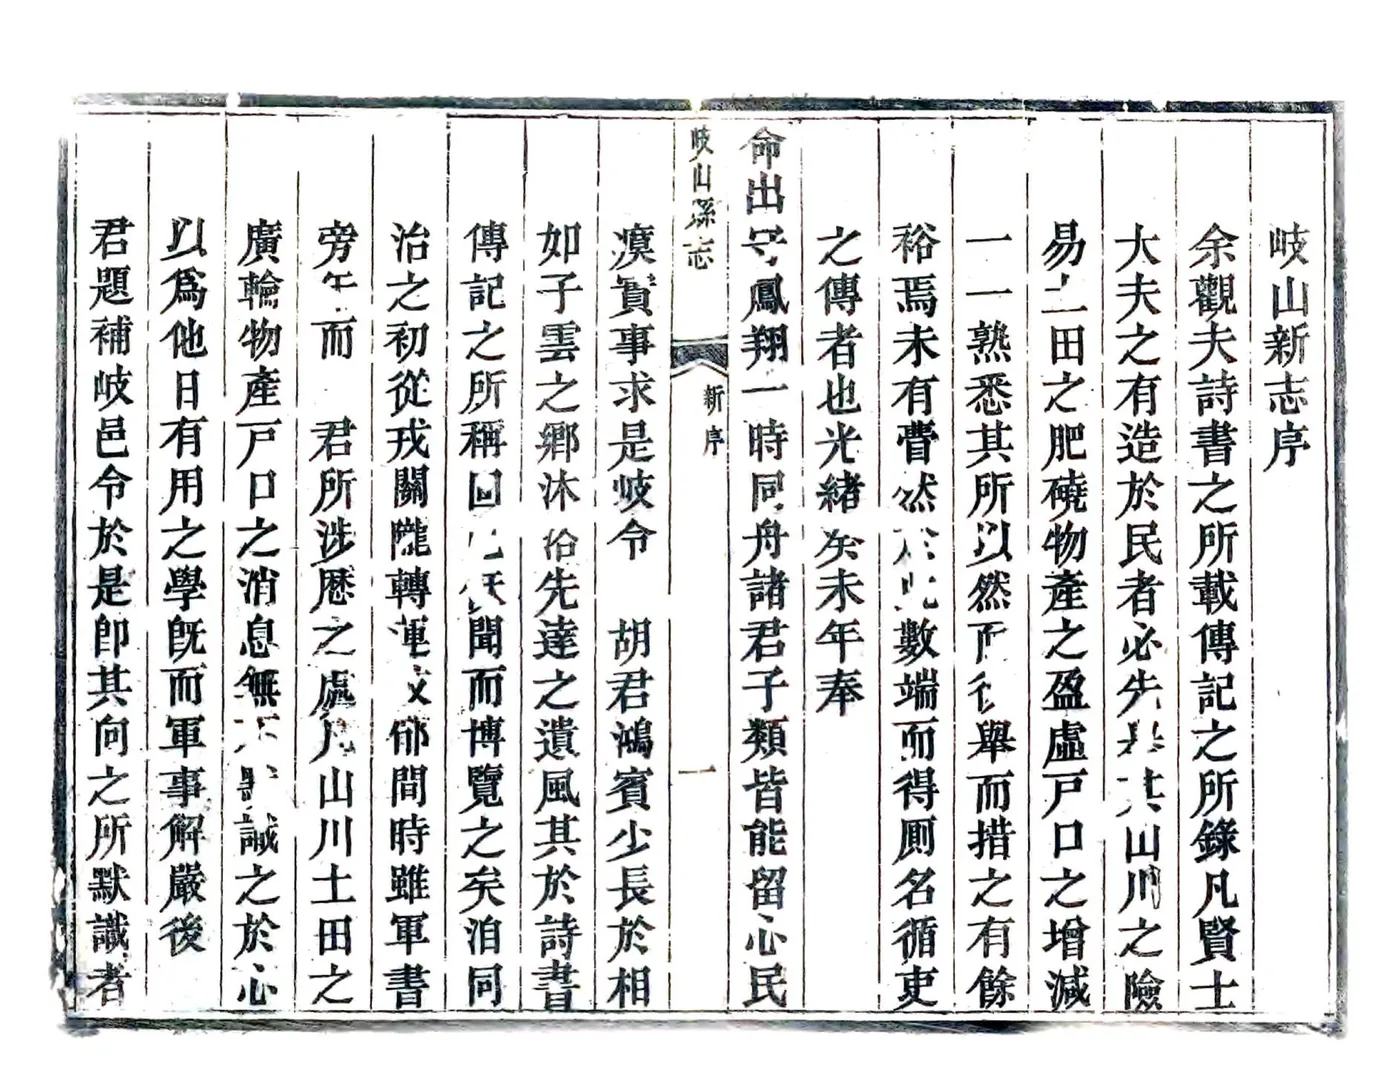 岐山新志序
余觀夫詩書之所載傳記之所錄凡賢士
大夫之有造於民者必先其山川之險
易土田之肥磽物產之盈虛戸口之增減
一一熟悉其所以然而後舉而措之有餘
裕焉未有瞢然於此數端而得厠名循吏
之傳者也光緒癸未年奉
命出守鳳翔一時同舟諸君子類皆能留心民
瘼實事求是岐令　胡君鴻賓少長於相
如子雲之鄉沐浴先達之遺風其於詩書
傳記之所稱固聞而博覽之矣洎同
治之初從戎關隴轉運邠間時雖軍書
旁午而　君所涉歴之處凡山川土田之
廣輪物產戸口之消息無不默誠之於心
以爲他日有用之學旣而軍事解嚴後
君題補岐邑令於是卽其向之所默識者
岐山縣志
新序
一